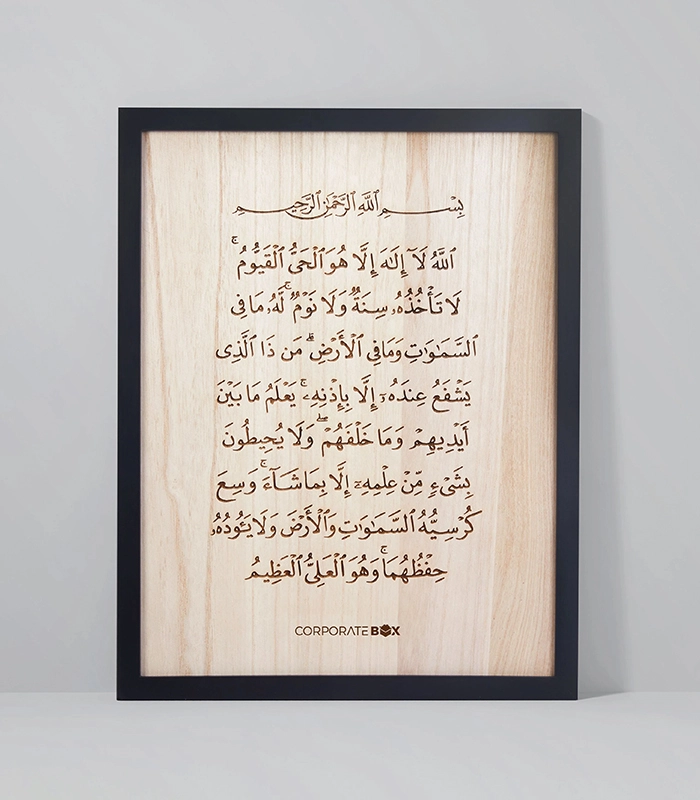 بِسْمِ ٱللَّهِ ٱلرَّحْمَٰنِ ٱلرَّحِيمِ
ٱللَّهُ لَآ إِلَٰهَ إِلَّا هُوَ ٱلْحَىُّ ٱلْقَيُّومُ ۚ
لَا تَأْخُذُهُۥ سِنَةٌ وَلَا نَوْمٌ ۚ لَّهُۥ مَا فِى
ٱلسَّمَٰوَٰتِ وَمَا فِى ٱلْأَرْضِ ۗ مَن ذَا ٱلَّذِى
يَشْفَعُ عِندَهُۥٓ إِلَّا بِإِذْنِهِۦ ۚ يَعْلَمُ مَا بَيْنَ
أَيْدِيهِمْ وَمَا خَلْفَهُمْ ۖ وَلَا يُحِيطُونَ
بِشَىْءٍ مِّنْ عِلْمِهِۦٓ إِلَّا بِمَا شَآءَ ۚ وَسِعَ
كُرْسِيُّهُ ٱلسَّمَٰوَٰتِ وَٱلْأَرْضَ وَلَا يَـُٔودُهُۥ
حِفْظُهُمَا ۚ وَهُوَ ٱلْعَلِىُّ ٱلْعَظِيمُ
CORPORATE BOX